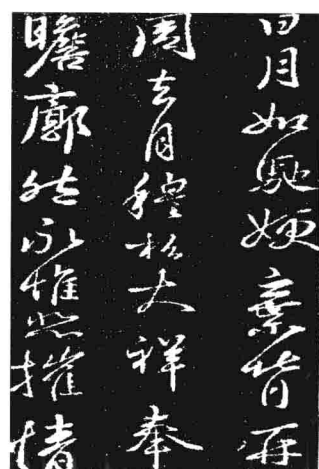 日月如馳嫂棄背再
周去月穆松大祥奉
瞻廓然永惟悲摧情